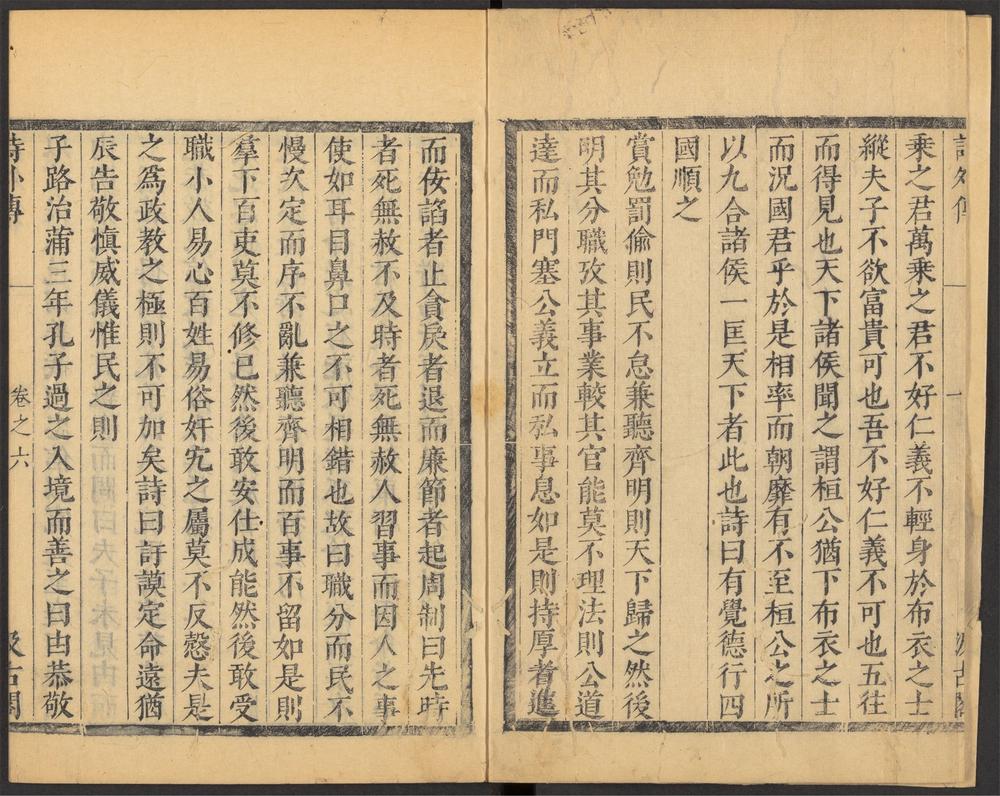 乘之君萬乘之君不好仁義不輕身於布衣之士
縱夫子不欲富貴可也吾不好仁義不可也五往
而得見也天下諸侯聞之謂桓公猶下布衣之士
而況國君乎於是相率而朝靡有不至桓公之所
以九合諸侯一匡天下者此也詩曰有覺德行四
國順之
賞勉罰偷則民不怠兼聽齊明則天下歸之然後
明其分職攷其事業較其官能莫不理法則公道
達而私門塞公義立而私事息如是則持厚者進
而佞諂者止貪戾者退而廉節者起周制曰先時
者死無赦不及時者死無赦人習事而因人之事
使如耳目鼻口之不可相錯也故曰職分而民不
慢次定而序不亂兼聽齊明而百事不留如是則
羣下百吏莫不修己然後敢安仕成能然後敢受
職小人易心百姓易俗奸宄之屬莫不反慤夫是
之爲政教之極則不可加矣詩曰訏謨定命遠猶
辰告敬慎威儀惟民之則
子路治蒲三年孔子過之入境而善之曰由恭敬
詩外傳
卷之六
汲古閣